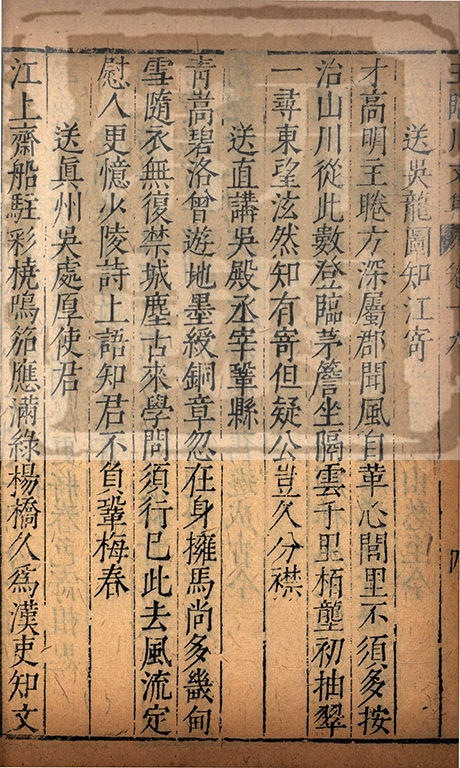 王臨川文集 卷十九 四
送吳龍圖知江寧
才高明主睠方深屬郡聞風自革心閭里不須多按
治山川從此數登臨茅簷坐隔雲千里栢壟初抽翠
一尋東望泫然知有寄但疑公豈久分襟
送直講吳殿丞宰鞏縣
青嵩碧洛曾遊地墨綬銅章忽在身擁馬尚多畿甸
雪隨衣無復禁城塵古來學問須行已此去風流定
慰人更憶少陵詩上語知君不負鞏梅春
送眞州吳處厚使君
江上齋船駐彩橈鳴笳應滿綠楊橋久爲漢吏知文